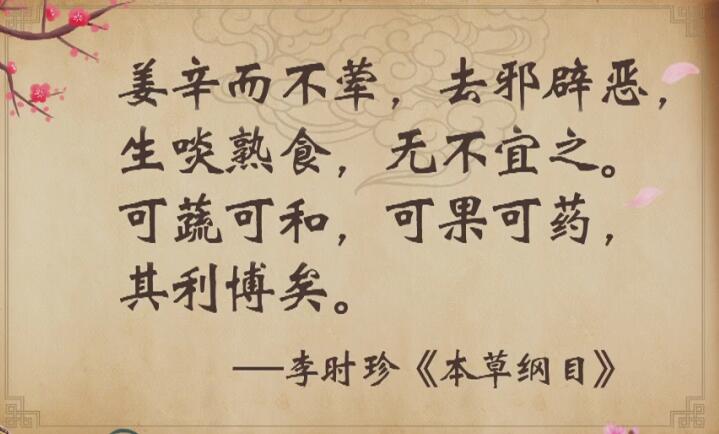 姜辛而不荤，去邪辟恶，
生啖熟食，无不宜之。
可蔬可和，可果可药，
其利博矣。
——李时珍《本草纲目》